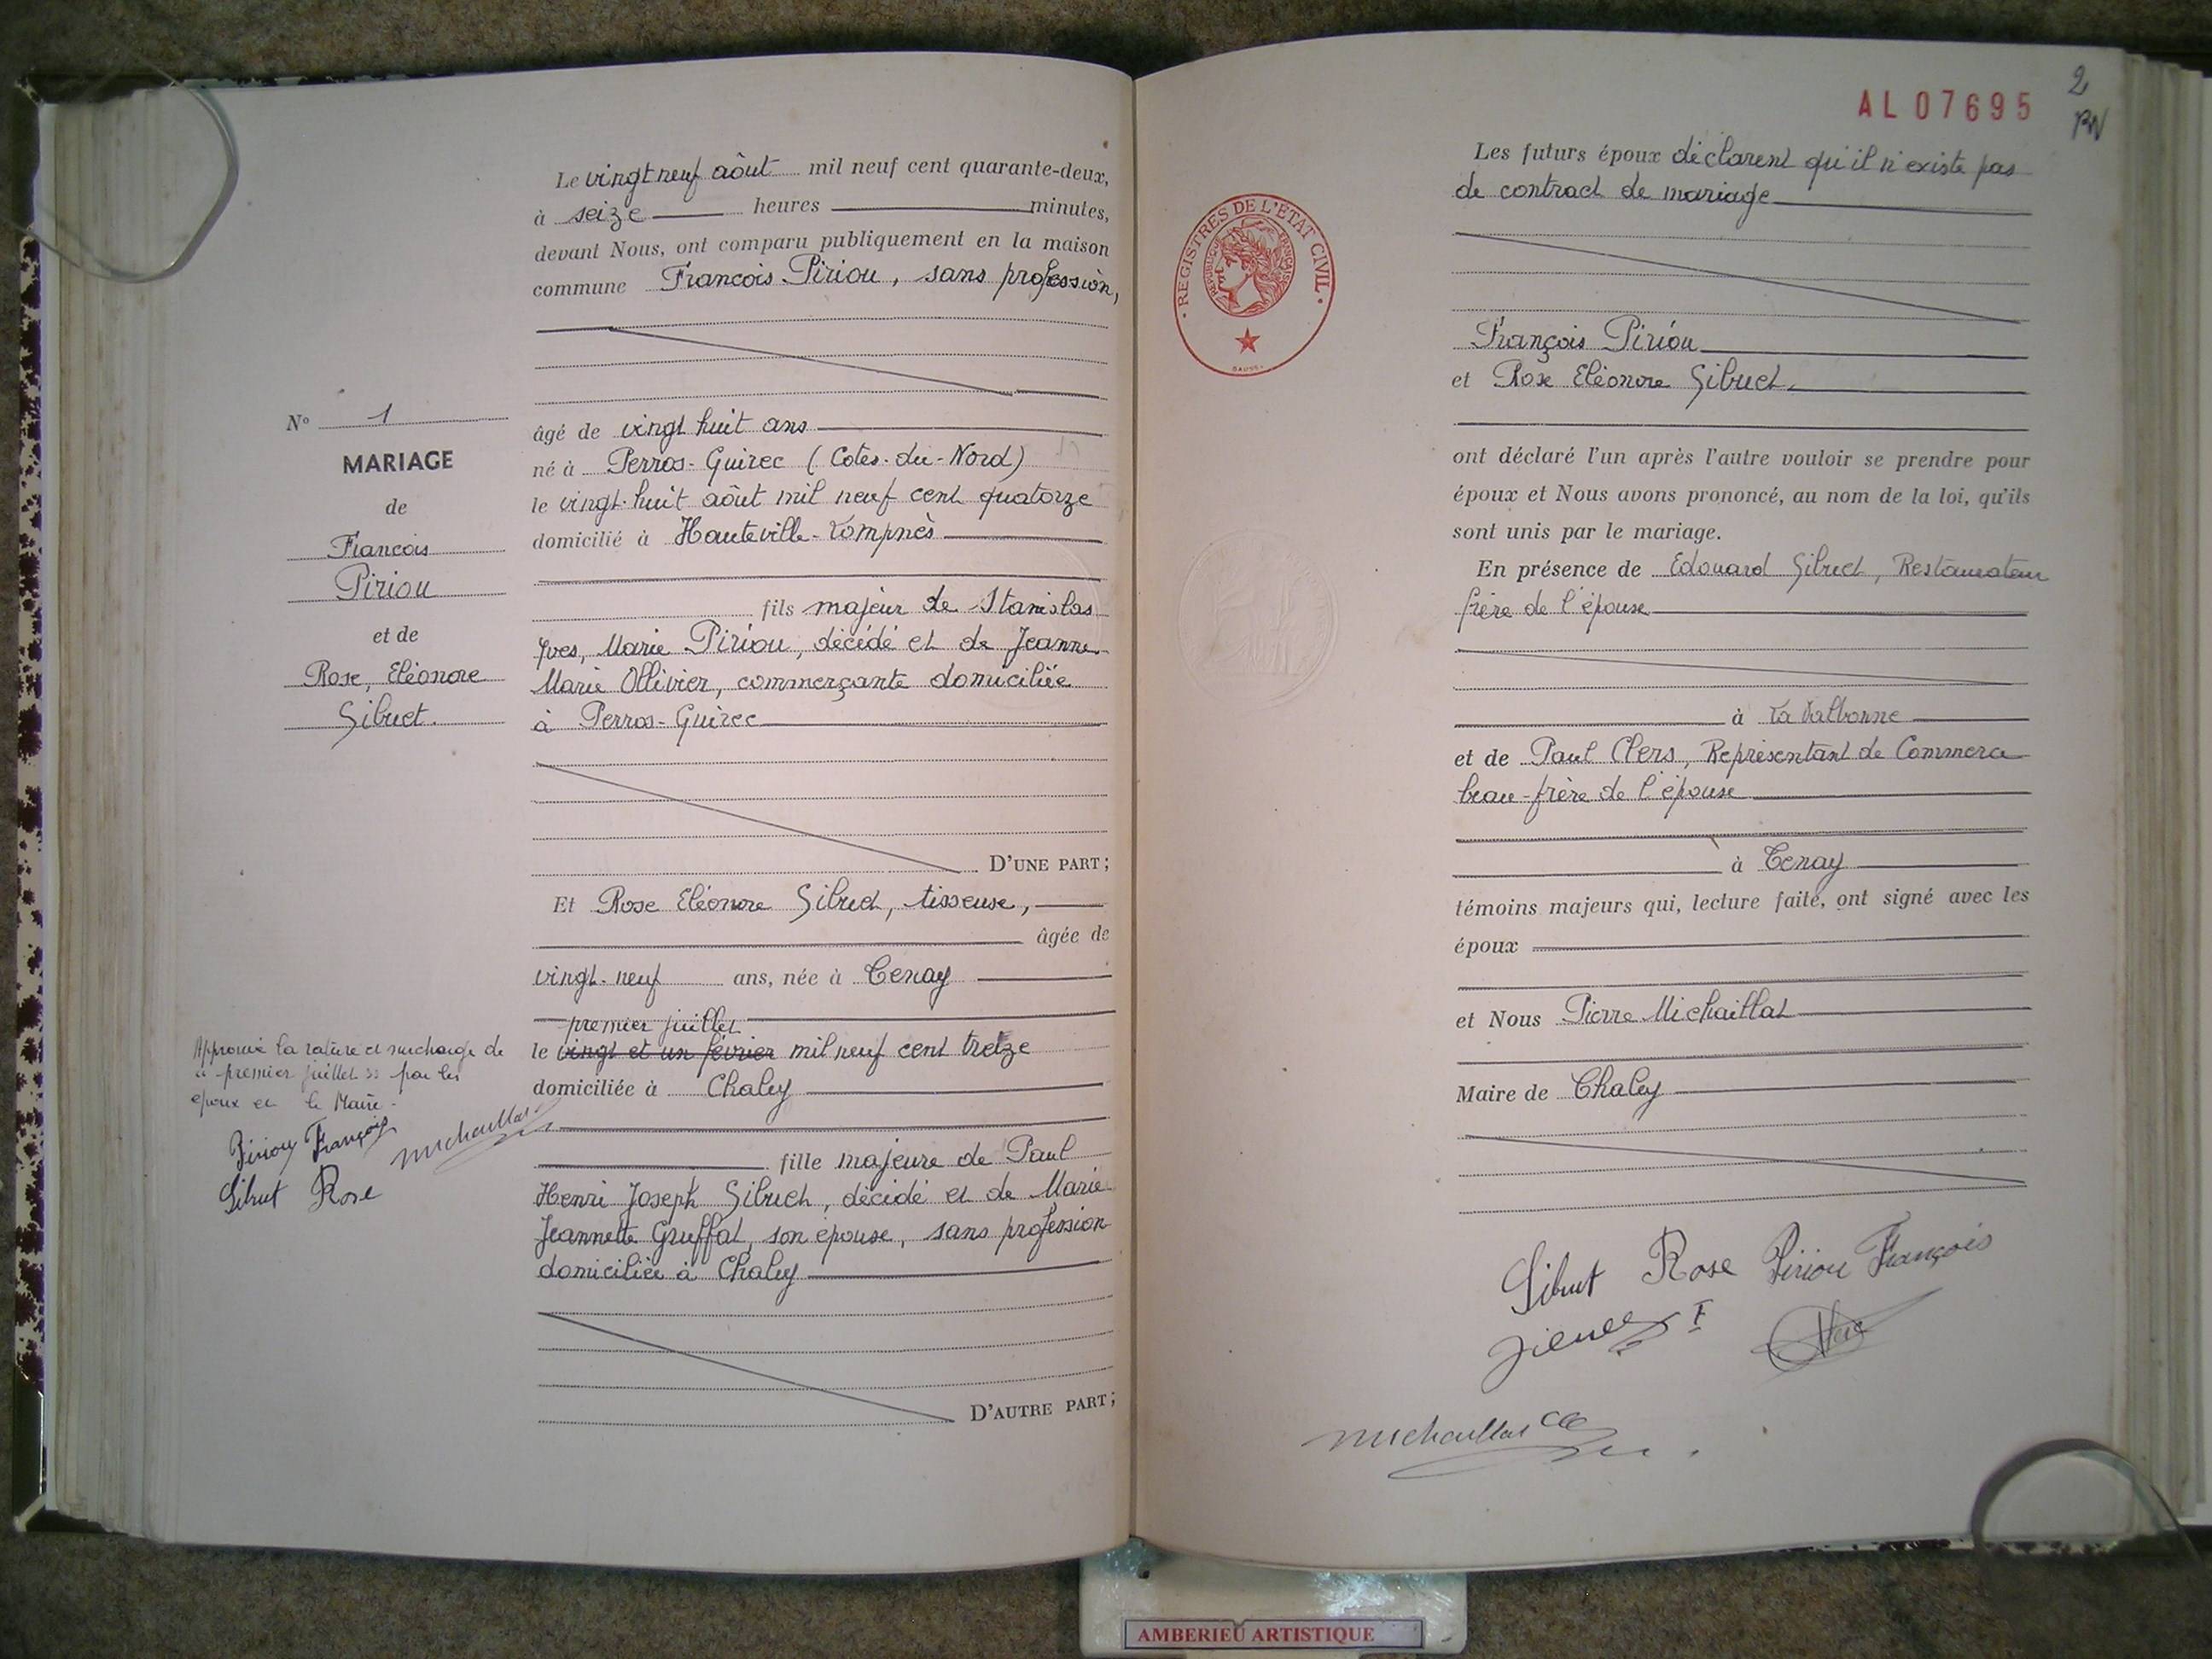 Le vingt neuf août mil neuf cent quarante-deux,
à seize heures minutes,
devant Nous, ont comparu publiquement en la maison
commune Francois Piriou, sans profession,
âgé de vingt huit ans
né à Perros-Guirec (Cotes-du-Nord)
le vingt-huit août mil neuf cent quatorze
domicilié à Hauteville-Lompnès
fils majeur de Stanislas
Yves, Marie Piriou, décédé et de Jeanne
Marie Ollivier, commerçante domiciliée
à Perros-Guirec
D'UNE PART;
Et Rose Eléonore Sibuet, tisseuse,
âgée de
vingt-neuf ans, née à Tenay
premier juillet
le vingt et un février mil neuf cent treize
domiciliée à Chaley
fille majeure de Paul
Henri Joseph Sibuet, décidé et de Marie
Jeannette Gruffat, son épouse, sans profession
domiciliée à Chaley
D'AUTRE PART;
N° 1
MARIAGE
de
Francois
Piriou
et de
Rose, Eléonore
Sibuet.
Approuvé la rature et surcharge de
" premier juillet " par les
époux et le Maire.
Piriou François
Michaillat
Sibuet Rose
2
AL 07695
PN
REGISTRES DE L'ÉTAT CIVIL
RÉPUBLIQUE FRANÇAISE
Les futurs époux déclarent qu'il n'existe pas
de contract de mariage
François Piriou
et Rose Eléonore Sibuet.
ont déclaré l'un après l'autre vouloir se prendre pour
époux et Nous avons prononcé, au nom de la loi, qu'ils
sont unis par le mariage.
En présence de Edouard Sibuet, Restaurateur
frère de l'épouse
à La Valbonne
et de Paul Clers, Représentant de Commerce
beau-frère de l'épouse
à Tenay
témoins majeurs qui, lecture faite, ont signé avec les
époux
et Nous Pierre Michaillat
Maire de Chaley
Sibuet Rose Piriou François
Michaillat
AMBERIEU ARTISTIQUE